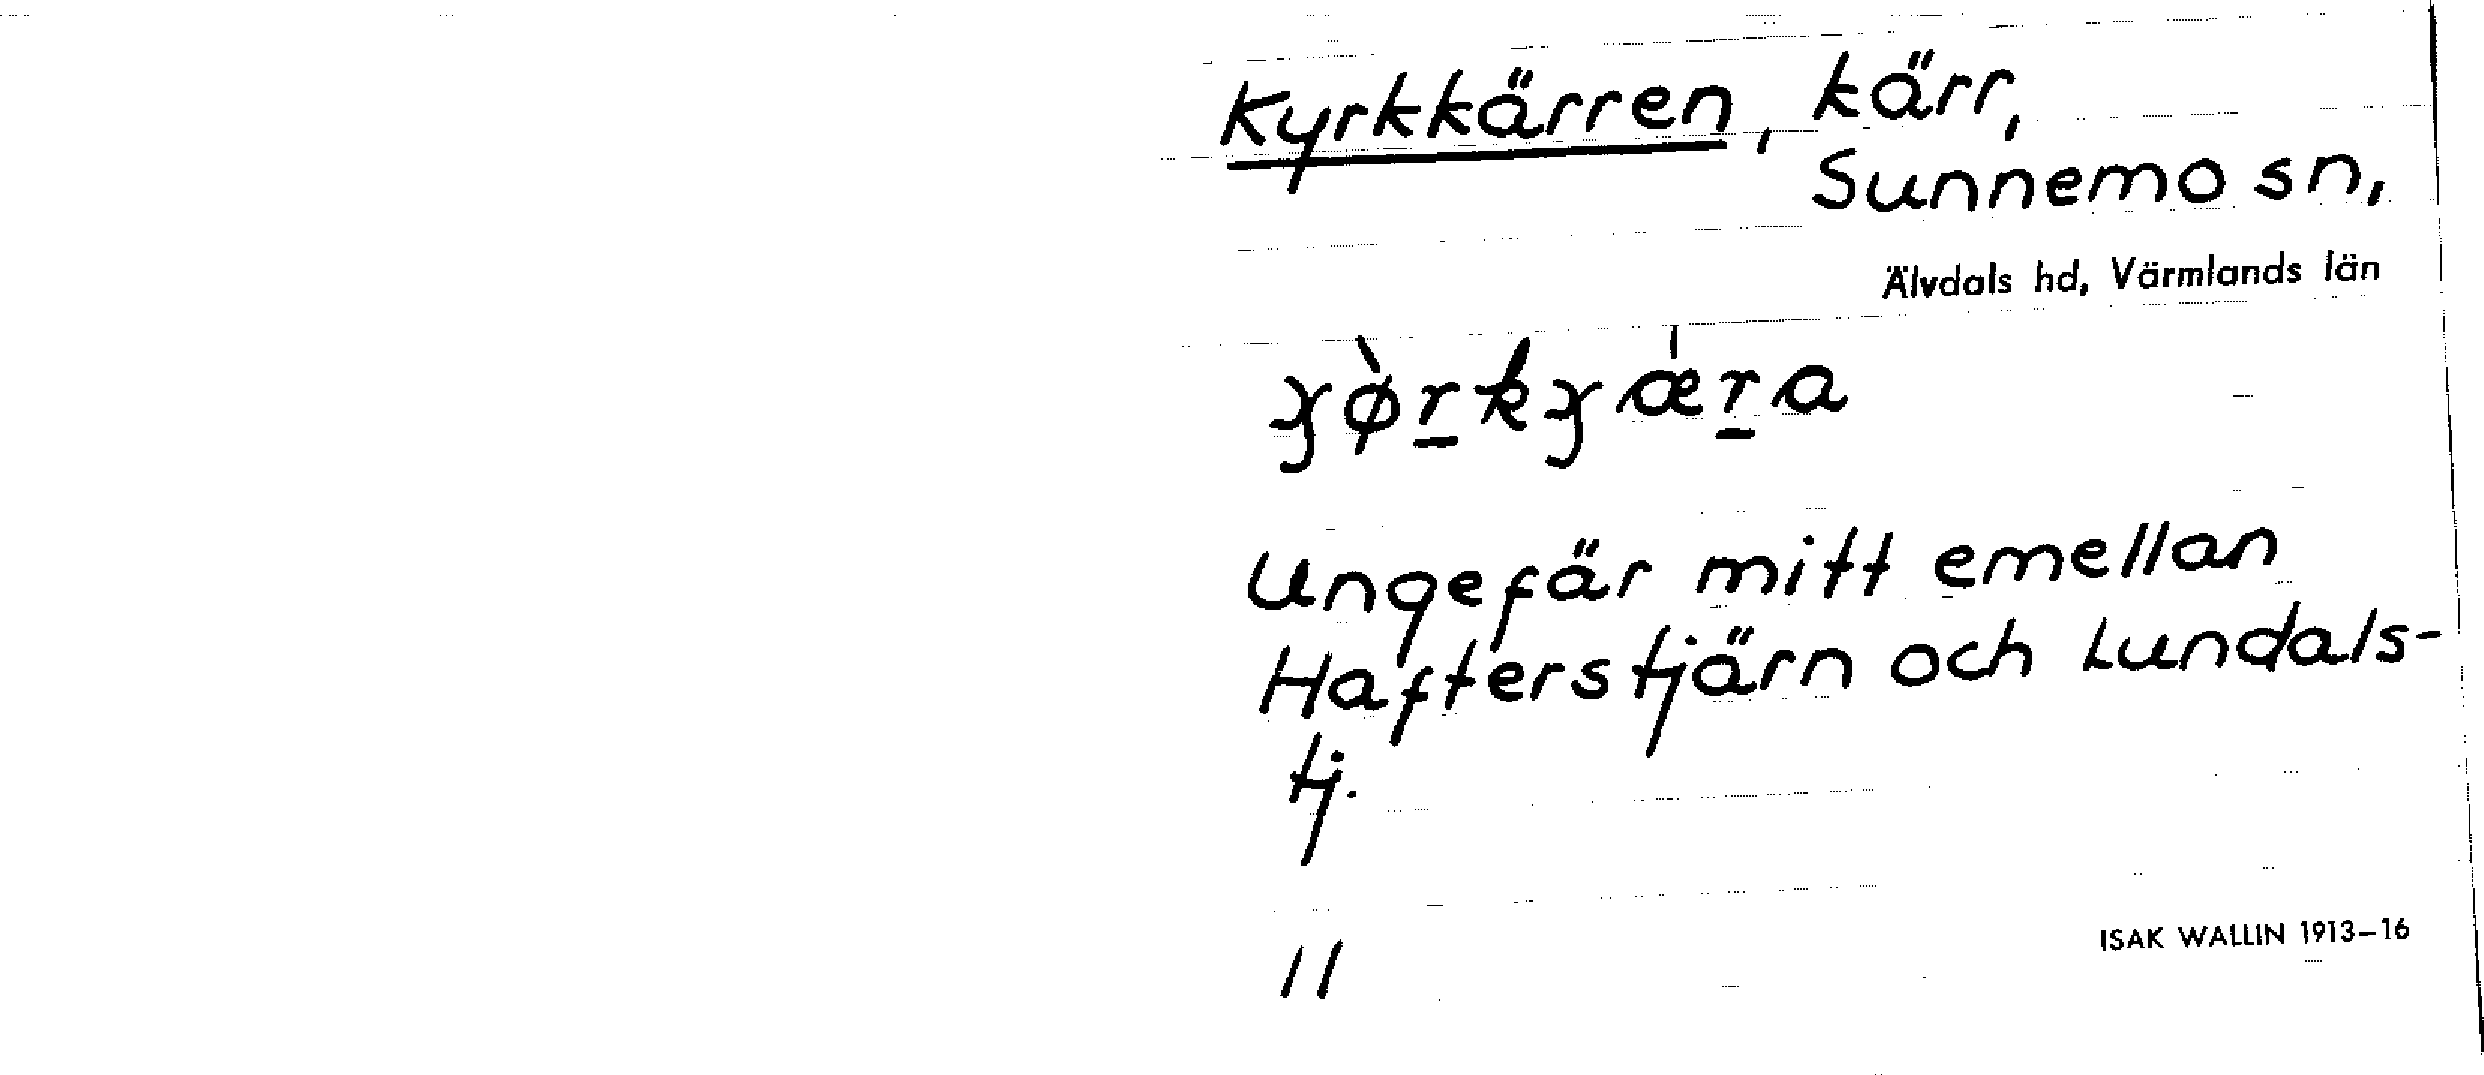 Kyrkkärren, kärr,
Sunnemo sn,
Älvdals hd, Värmlands län
Ungefär mitt emellan
Hafterstjärn och Lundals-
tj.
11
ISAK WALLIN 1913–16